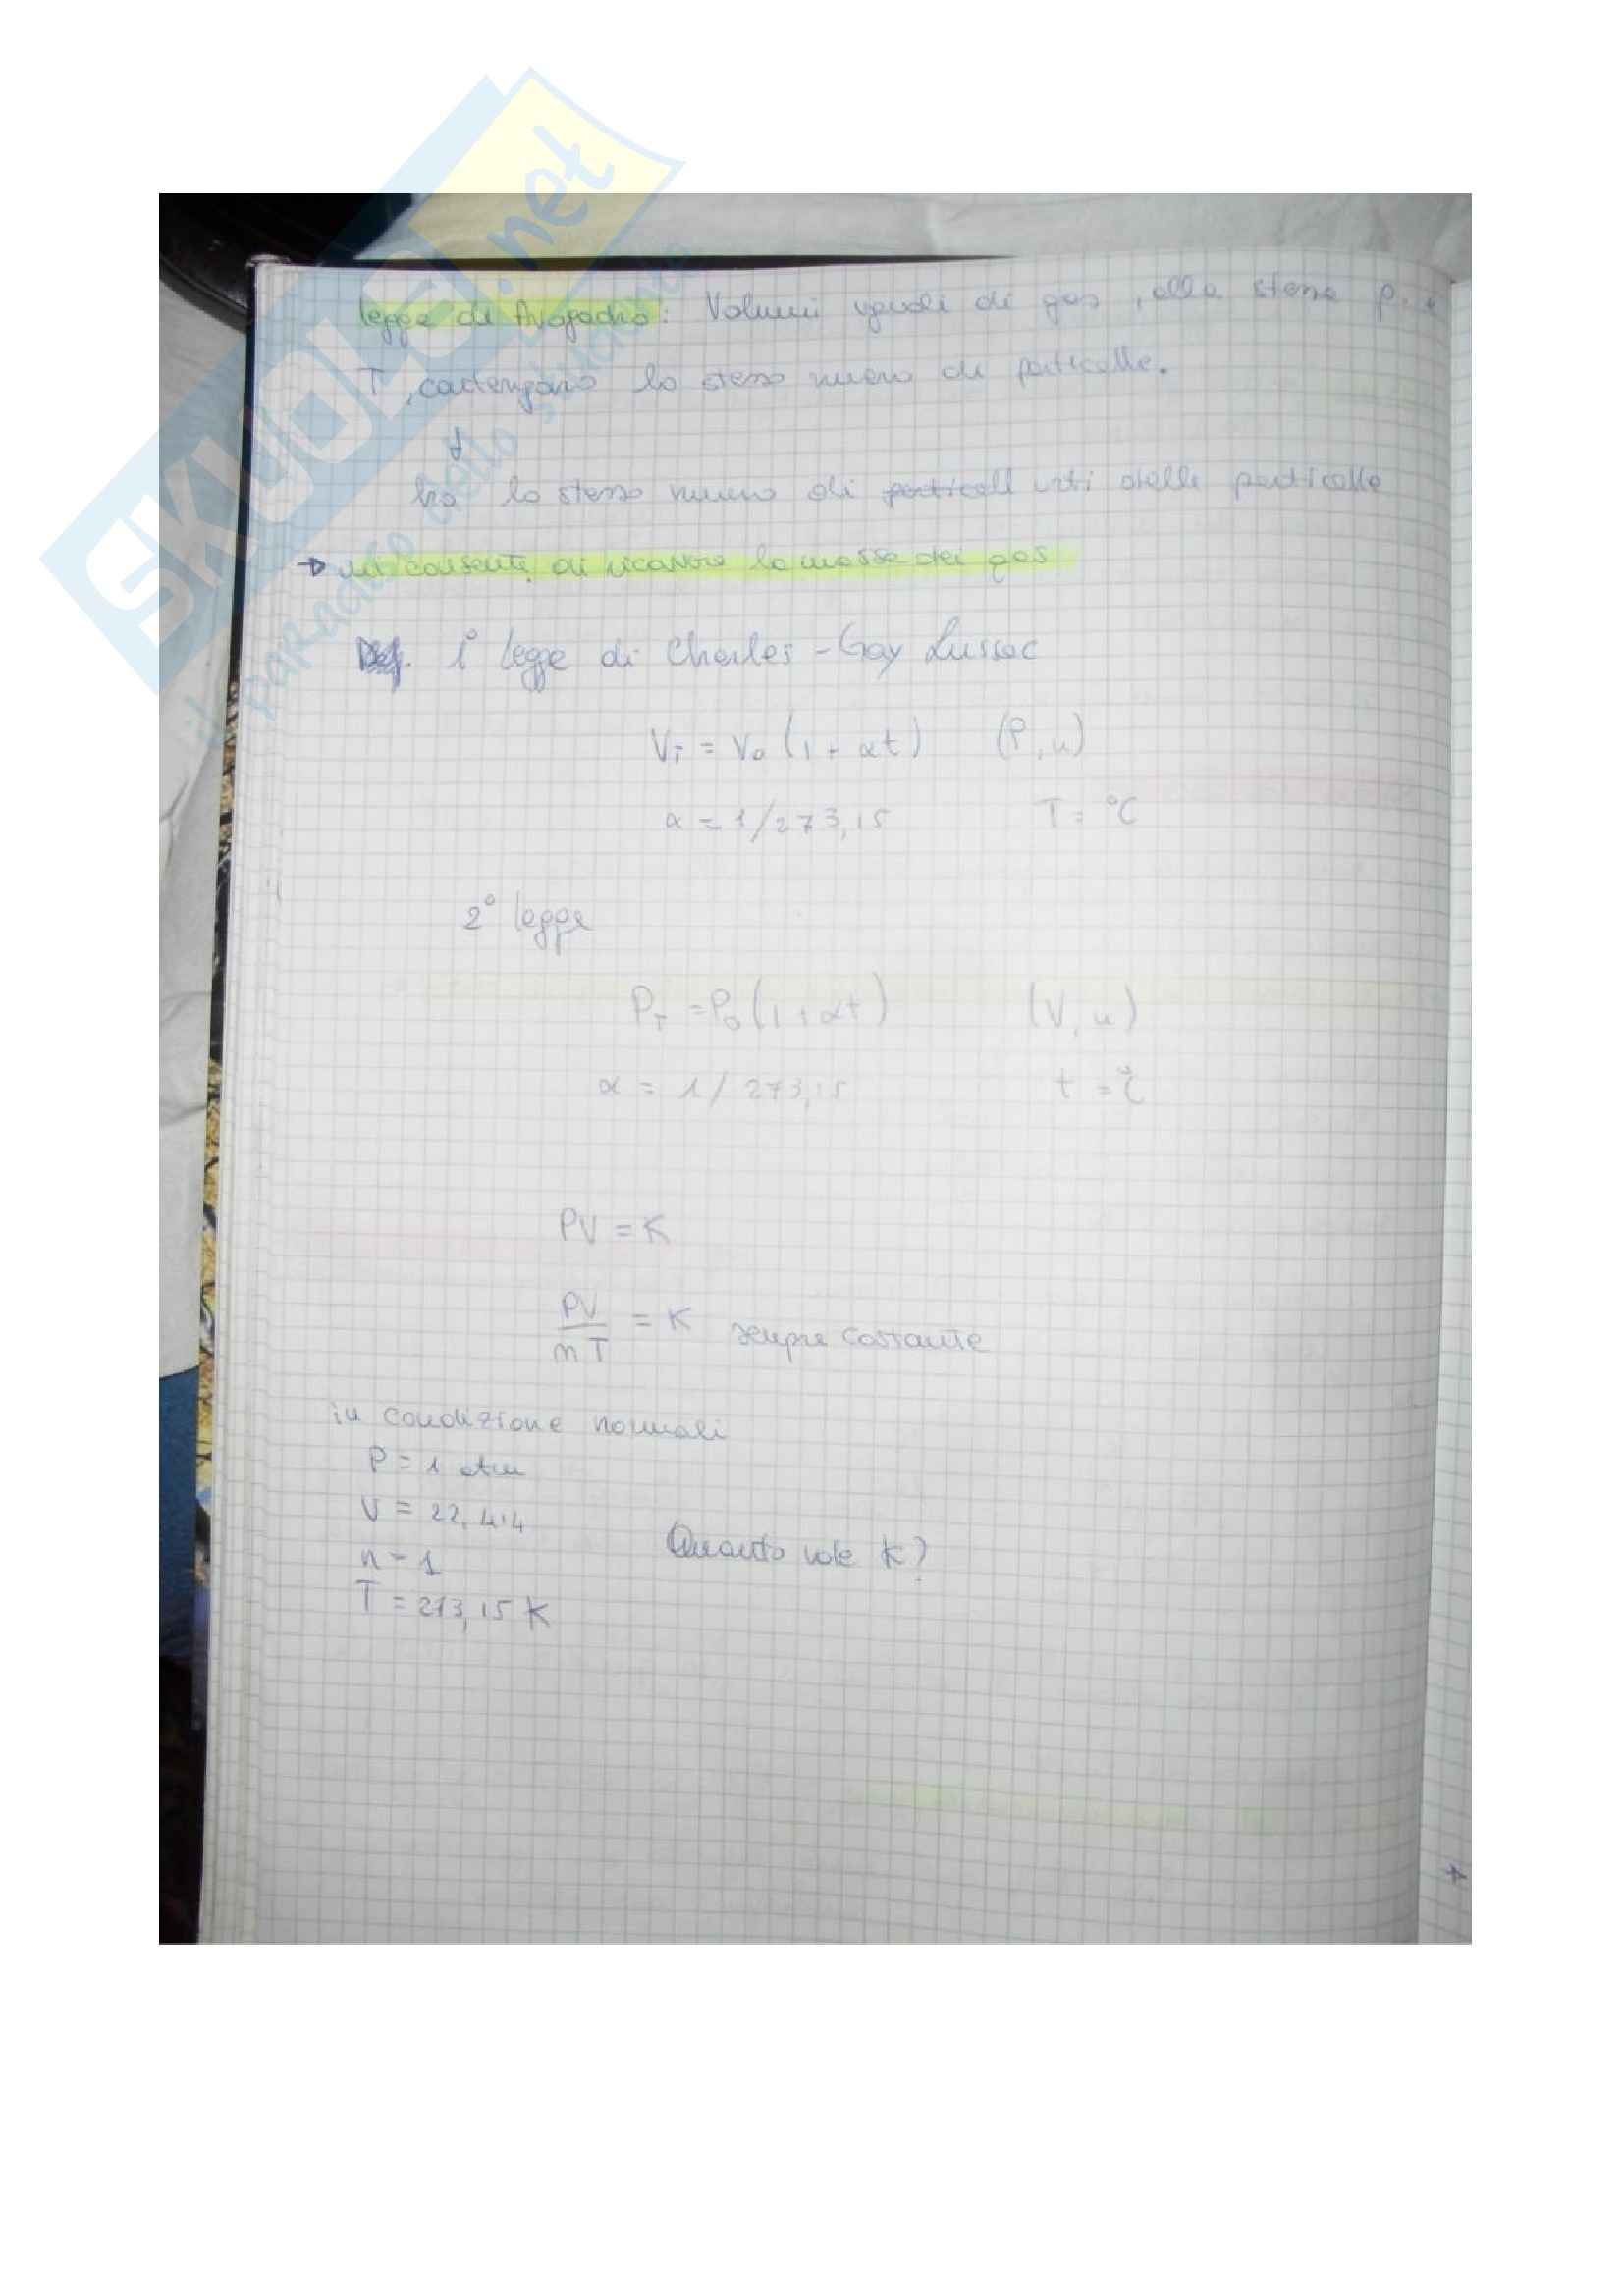 SKUOLA.net
il paradiso dello studente
legge di Avogadro: Volumi uguali di gas, alla stessa p. e
T, contengano lo stesso numero di particelle.
ha lo stesso numero di particell urti delle particelle
→ mi consente di ricavare la massa dei gas
Def. 1° legge di Charles - Gay Lussac
VT = V0 (1 + αt) (P, n)
α = 1/273,15 T = °C
2° legge
PT = P0 (1 + αt) (V, n)
α = 1/273,15 t = °C
PV = K
PV
— = K sempre costante
nT
in condizione normali
P = 1 atm
V = 22,414
n = 1 Quanto vale K?
T = 273,15 K